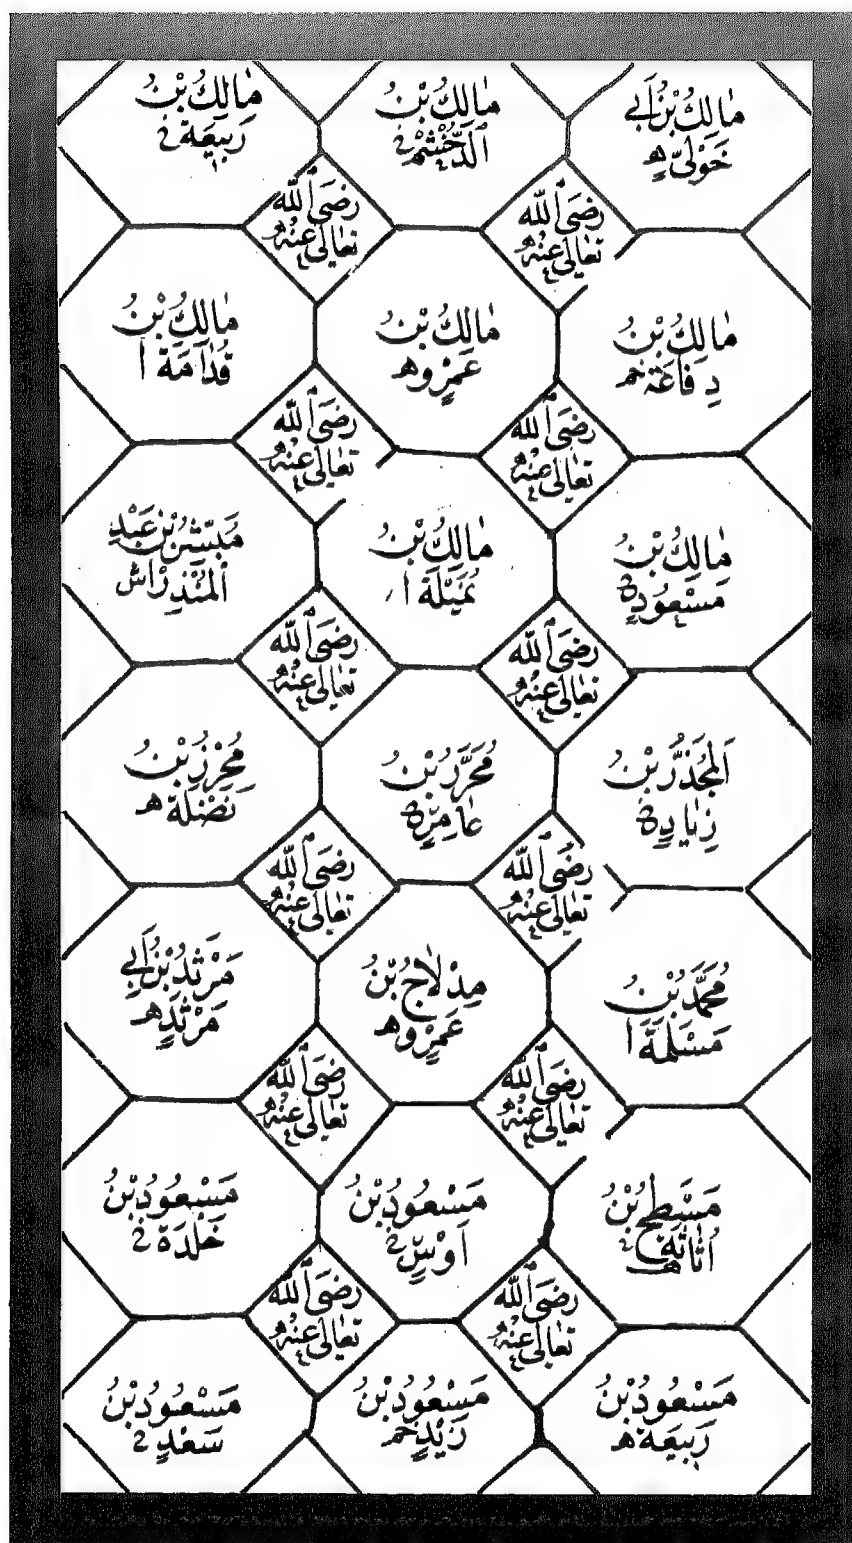 مَالِكُ بْنُ أَبِي
خَوْلِيٍّ هـ
مَالِكُ بْنُ
الدُّخْشُمْ خ
مَالِكُ بْنُ
رَبِيعَة خ
رَضِيَ اللّٰه
تَعَالٰى عَنْهُ
رَضِيَ اللّٰه
تَعَالٰى عَنْهُ
مَالِكُ بْنُ
رِفَاعَة خم
مَالِكُ بْنُ
عَمْرٍو هـ
مَالِكُ بْنُ
قُدَامَة ا
رَضِيَ اللّٰه
تَعَالٰى عَنْهُ
رَضِيَ اللّٰه
تَعَالٰى عَنْهُ
مَالِكُ بْنُ
مَسْعُودٍ
مَالِكُ بْنُ
نُمَيْلَة ا
مُبَشِّرُ بْنُ عَبْدِ
الْمُنْذِرِ
رَضِيَ اللّٰه
تَعَالٰى عَنْهُ
رَضِيَ اللّٰه
تَعَالٰى عَنْهُ
اَلْمُجَذَّرُ بْنُ
زِيَادٍ
مُحَرَّرُ بْنُ
عَامِرٍ
مُحْرِزُ بْنُ
نَضْلَة هـ
رَضِيَ اللّٰه
تَعَالٰى عَنْهُ
رَضِيَ اللّٰه
تَعَالٰى عَنْهُ
مُحَمَّدُ بْنُ
مَسْلَمَةَ ا
مِدْلَاجُ بْنُ
عَمْرٍو هـ
مَرْثَدُ بْنُ أَبِي
مَرْثَدٍ هـ
رَضِيَ اللّٰه
تَعَالٰى عَنْهُ
رَضِيَ اللّٰه
تَعَالٰى عَنْهُ
مِسْطَحُ بْنُ
اُثَاثَة هـ
مَسْعُودُ بْنُ
اَوْسٍ
مَسْعُودُ بْنُ
خَلْدَة
رَضِيَ اللّٰه
تَعَالٰى عَنْهُ
رَضِيَ اللّٰه
تَعَالٰى عَنْهُ
مَسْعُودُ بْنُ
رَبِيعَة هـ
مَسْعُودُ بْنُ
زَيْدٍ خم
مَسْعُودُ بْنُ
سَعْدٍ